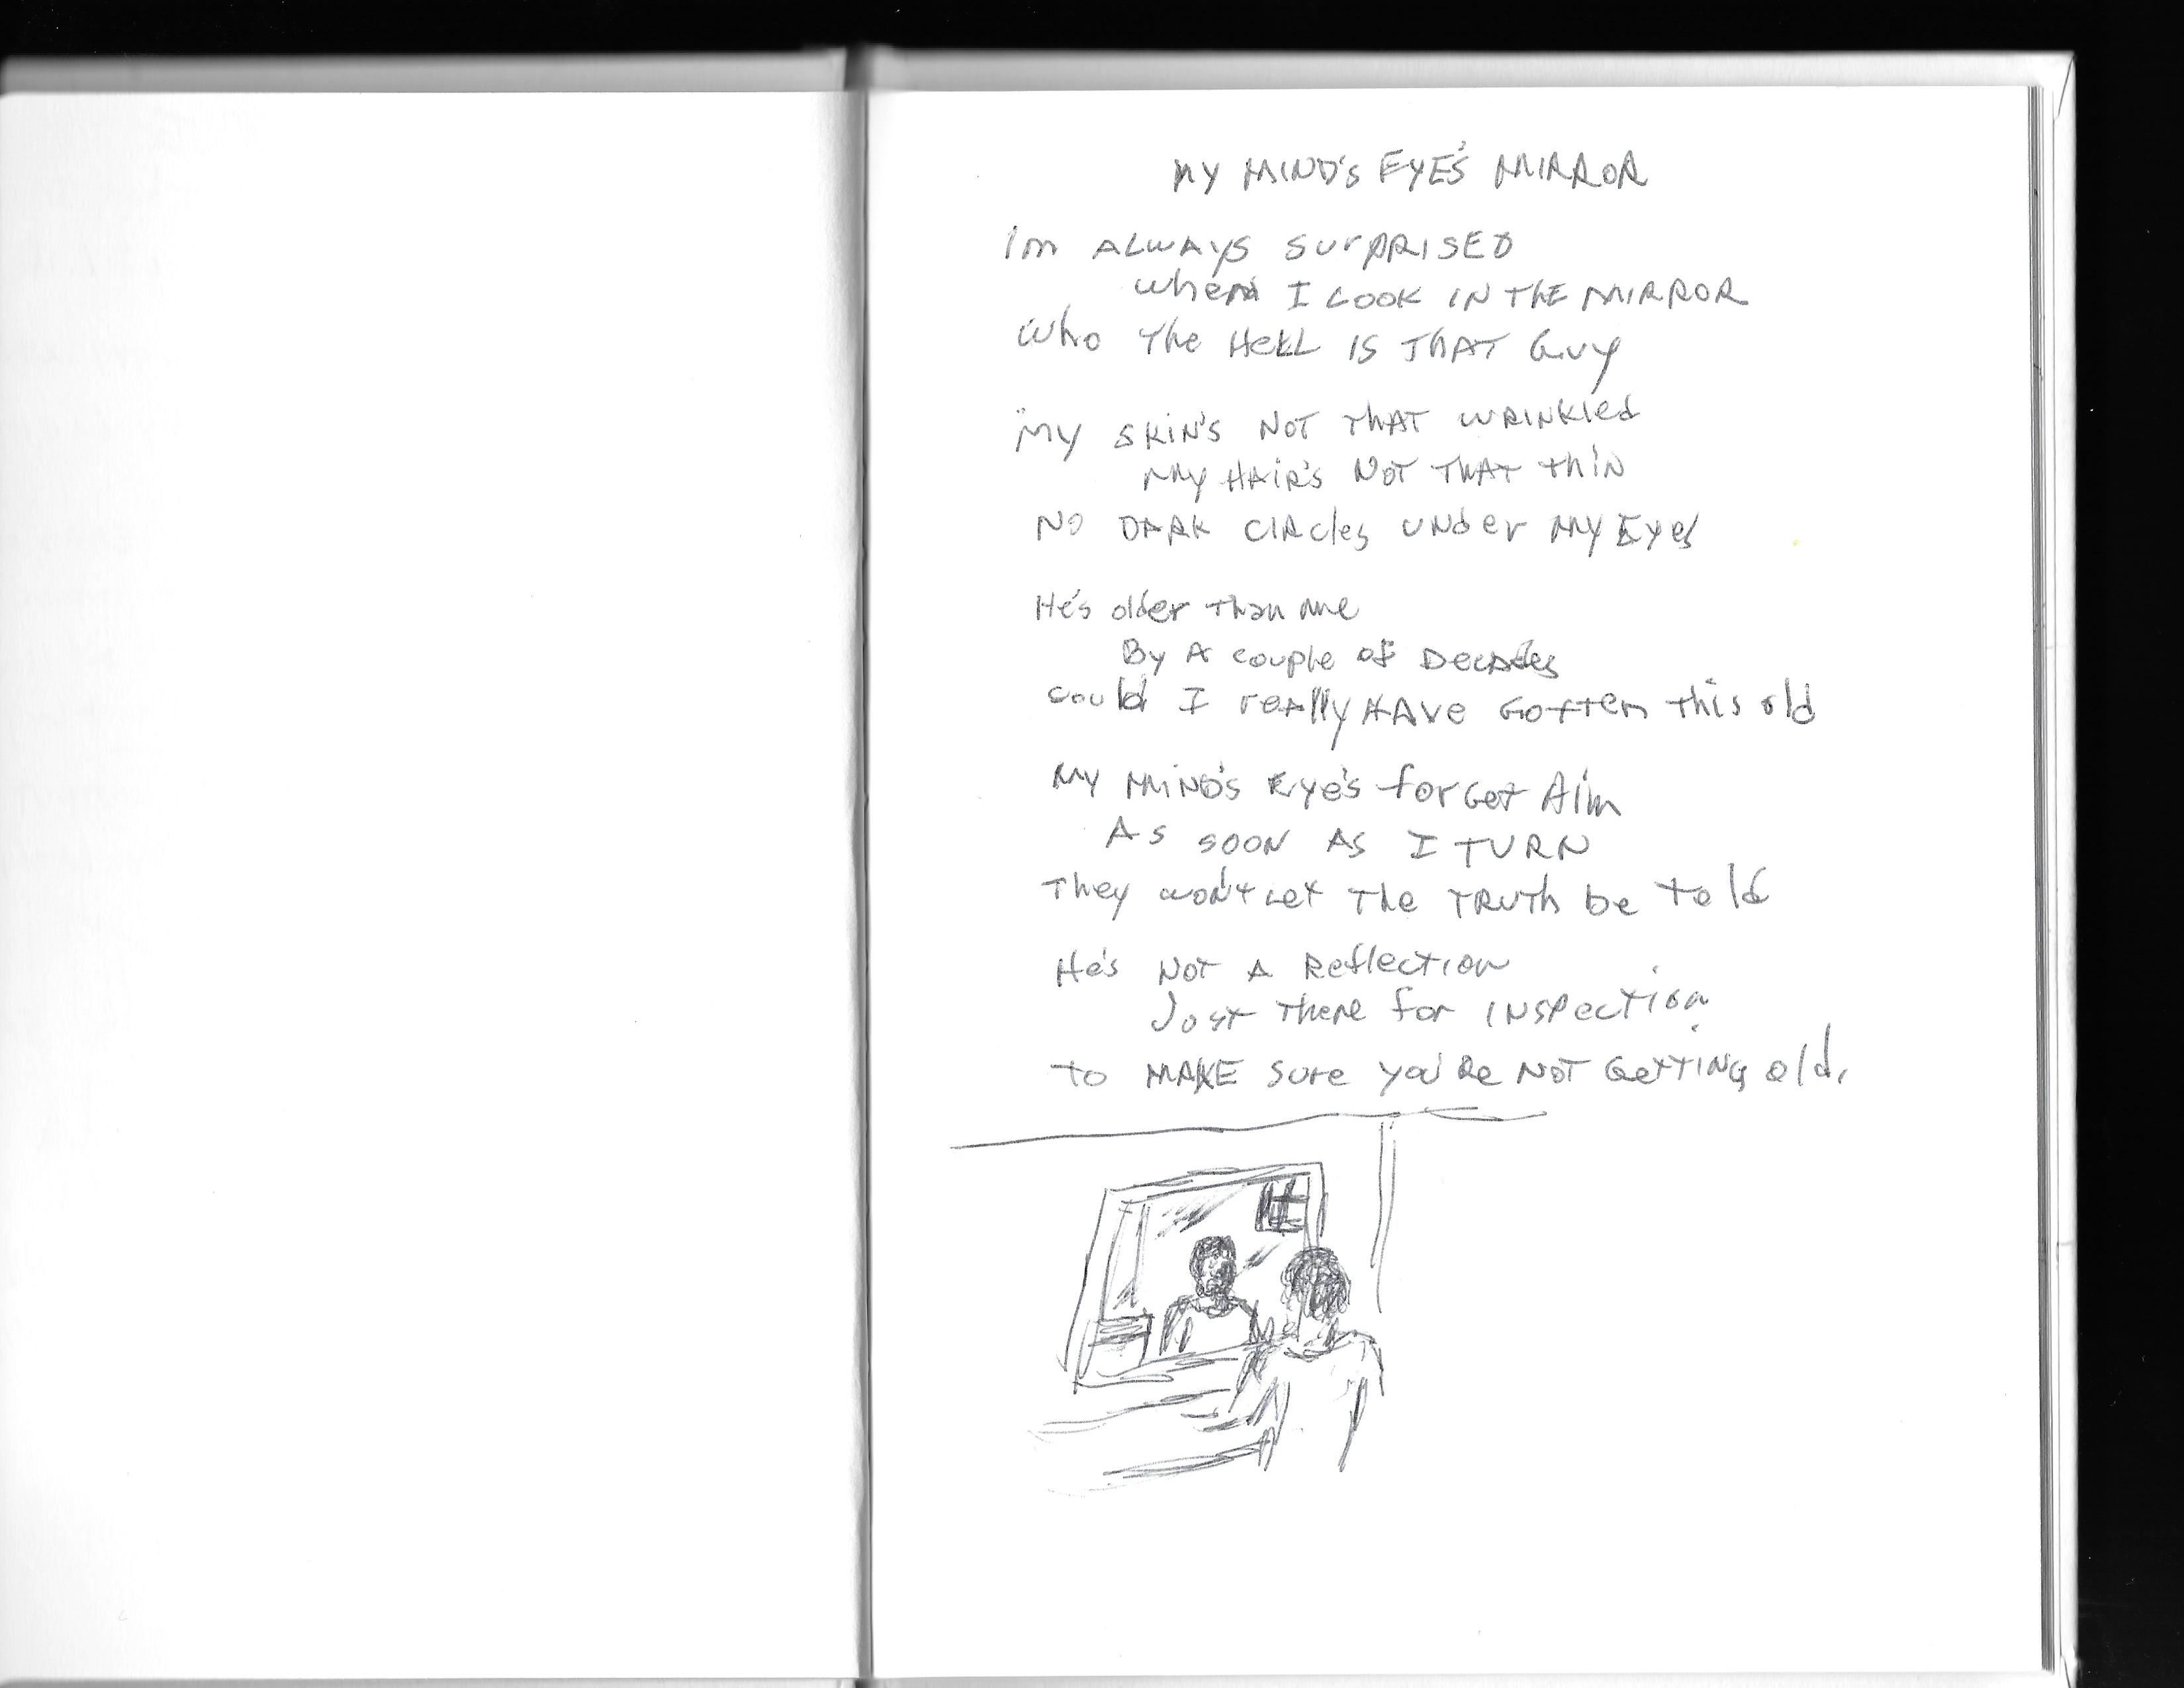 MY MIND'S EYE'S MIRROR
I'm ALWAYS SURPRISED
when I LOOK IN THE MIRROR
Who The HELL IS THAT GUY
My SKIN'S NOT THAT WRINKled
MY HAIR'S NOT THAT thiN
NO DARK CIRcles UNder MY Eyes
He's older than me
By A couple of Decades
could I really HAVE GOTTEN this old
MY MIND'S Eye's forGet Him
AS SOON AS I TURN
They won't Let The TRUTh be told
He's NOT A Reflection
Just There for INSPection
to MAKE Sure you're NOT GeTTING old.